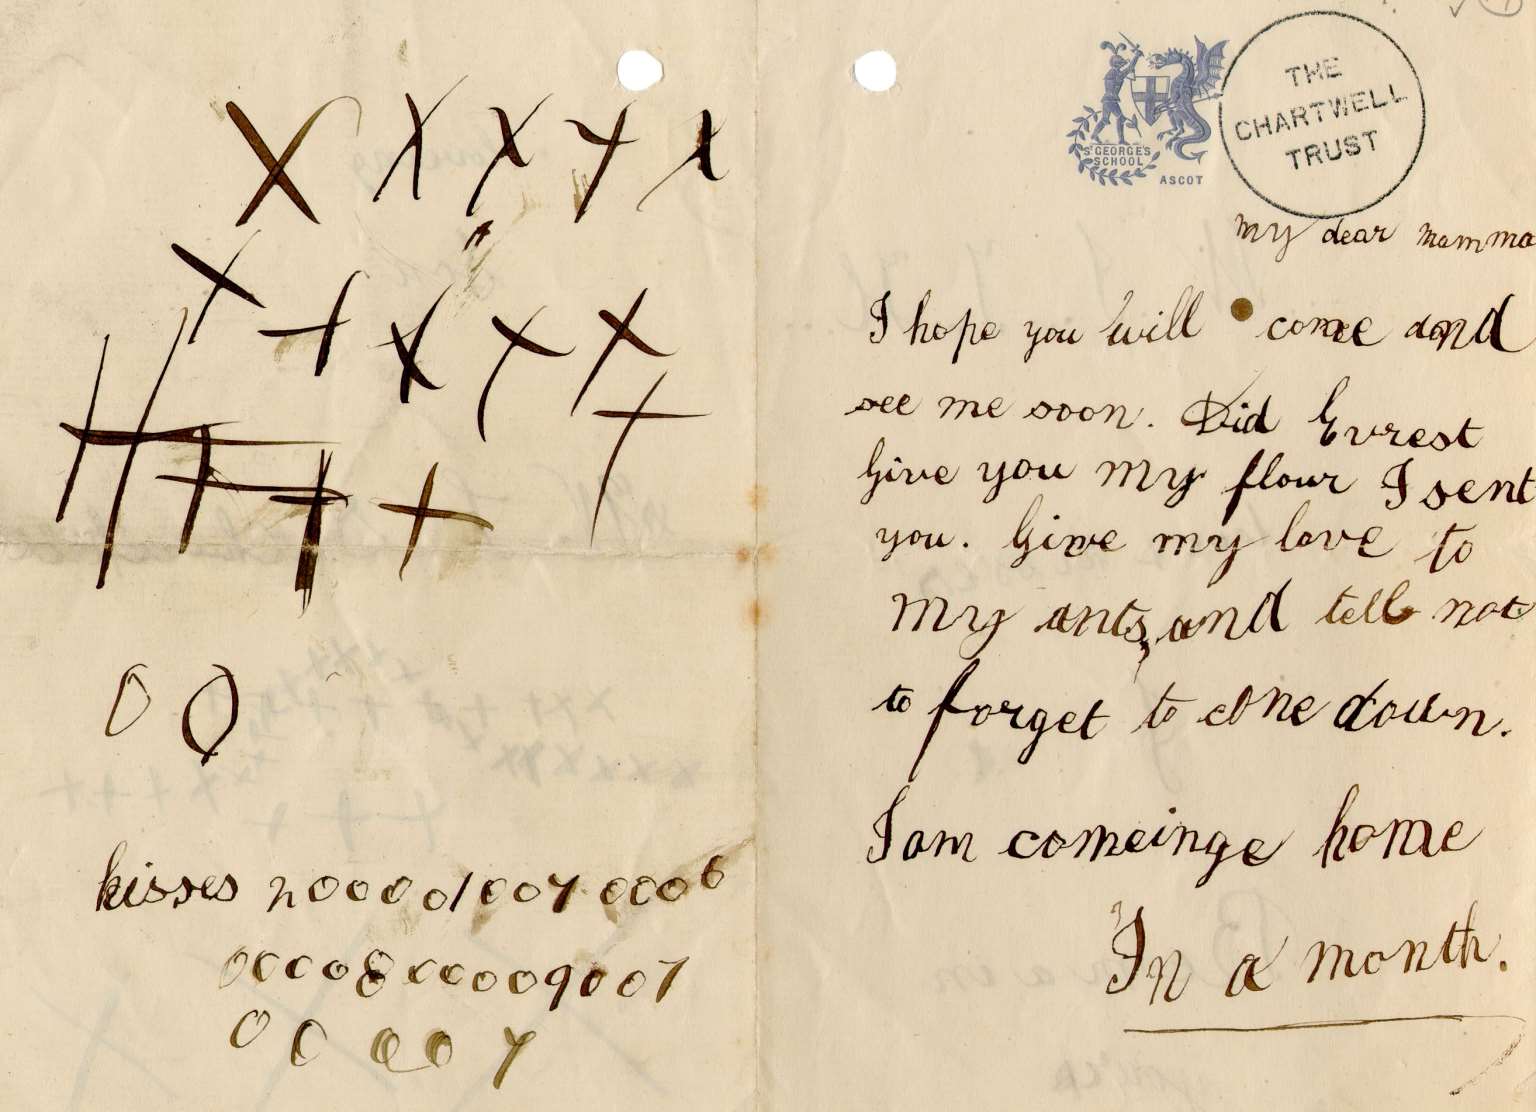 X X X X X
X X X X X
X X X X X X
0 0
kisses
ST GEORGE'S
SCHOOL
ASCOT
THE
CHARTWELL
TRUST
my dear mamma
I hope you will come and
see me soon. Did Evrest
give you my flour I sent
you. Give my love to
my ants, and tell not
to forget to come down.
I am comeinge home
In a month.